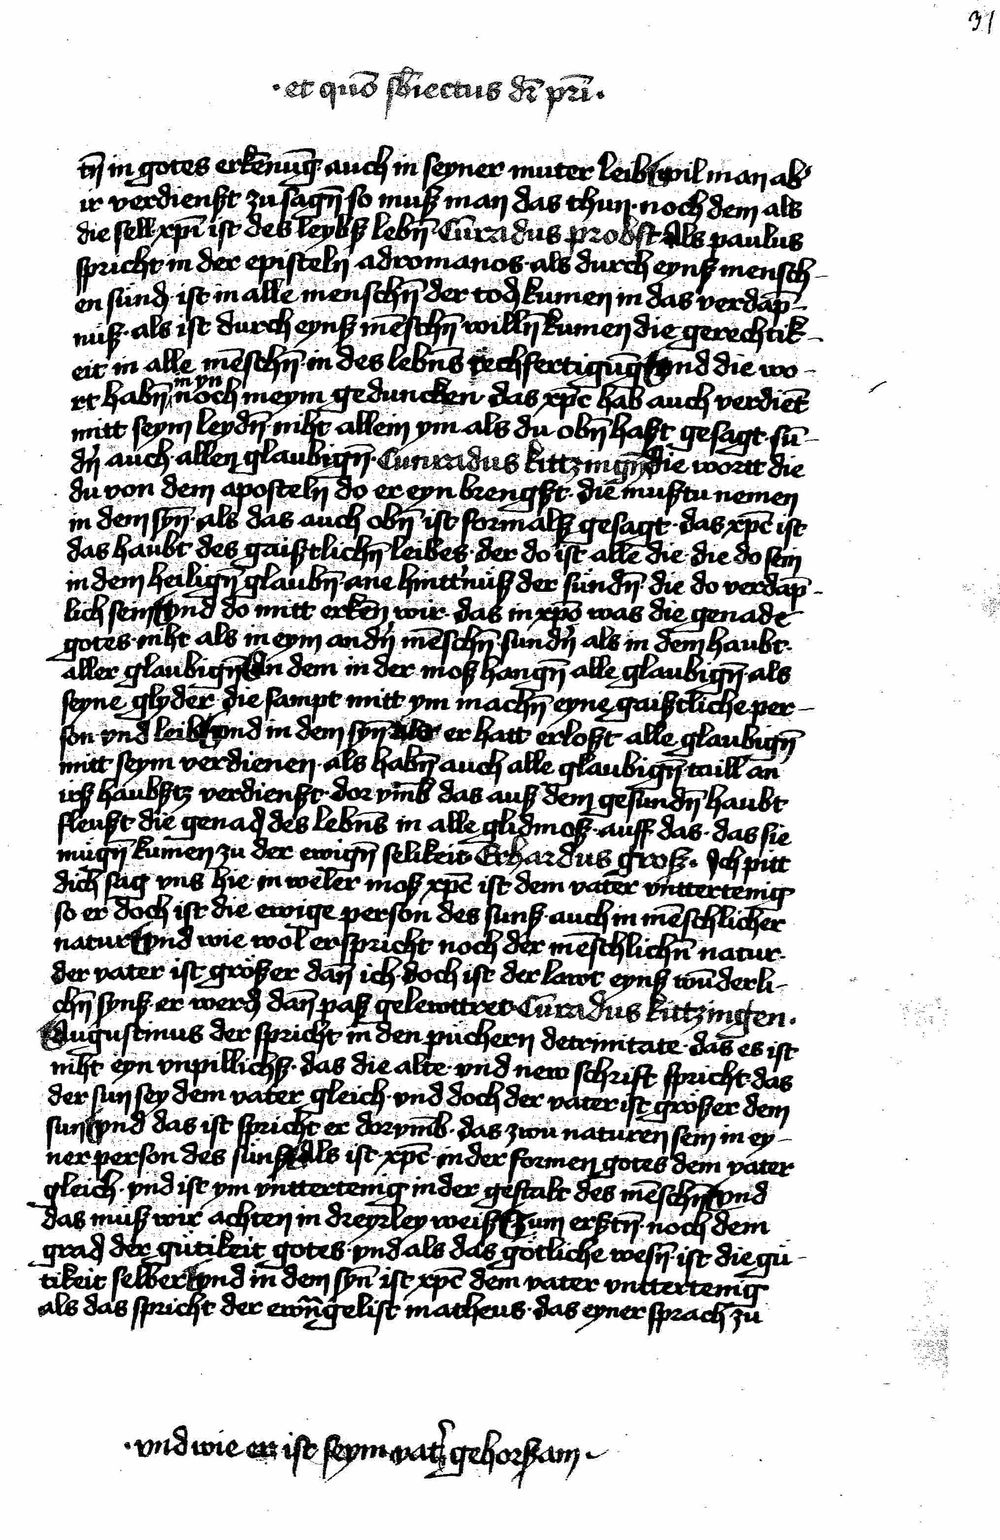 31
·et quō sb̄iectus dr̄ pri̅·
tn̄ in gotes erkēnūg· auch in seyner muter leib wil man ab͛
ir verdienßt zu sagn̄ so muß man das thun· noch dem als
die sell xp̄i ist des leybß lebn̄· Cūradus probst Als paulus
spricht in der episteln ad romanos· als durch eynß mensch-
en sünd ist in alle menschn̄ der tod kumen in das verdāp-
nuß· als ist durch eynß mēschn̄ willn̄ kumen die gerechtik-
eit in alle mēschn̄ in des lebn̄s rechfertigūg vnd die wo-
rt habn̄ in yn noch meym geduncken· das xp̄c hab auch verdiēt
mitt seym leydn̄ niht allein ym als du obn̄ haßt gesagt· sū-
dn̄ auch allen glaubign̄· Cunradus kittzingn̄ die wortt die
du von dem aposteln do er eyn brengßt· die mußtu nemen
in dem syn̄· als das auch obn̄ ist formalß gesagt· das xp̄c ist
das haubt des gaißtlichn̄ leibes· der do ist alle die· die do sein
in dem heilign̄ glaubn̄· ane hintt͛nüß der sündn̄· die do verdāp-
lich sein vnd do mitt erkēn wir· das in xp̄o was die genade
gotes· niht als in eym andn̄ mēschn̄· sundn̄ als in dem haubt·
aller glaubign̄ An dem in der moß hangn̄ alle glaubign̄ als
seyne glyder· die sampt mitt ym machn̄ eyne gaißtliche per-
son vnd leib vnd in dem syn̄ als er hatt erloßt alle glaubign̄
mitt seym verdienen· als habn̄ auch alle glaubign̄ taill an
irß haubßtz verdienßt· dorvm̄b das auß dem gesundn̄ haubt
fleußt die genad des lebn̄s in alle glidmoß· auff das· das sie
mügn̄ kumen zu der ewign̄ selikeit· Erhardus groß· Ich pitt
dich sag vns hie· in weler moß xp̄c ist dem vater vnttertenig
so er doch ist die ewige person des sunß· auch in mēschlicher
natur vnd wie wol er spricht noch der mēschlichn̄ natur·
der vater ist größer dan̄ ich· doch ist der lawt eynß wūderli-
chn̄ synß· er werd dan̄ paß gelewttret· Cūradus kittzingen·
Augustinus der spricht in den püchern de trinitate· das es ist
niht eyn vnpillichß· das die alte vnd new schrift spricht· das
der sun sey dem vater gleich· vnd doch der vater ist größer dem
sun vnd das ist spricht er dorvm̄b· das zwu naturen sein in ey-
ner person des sünß Als ist xp̄c· in der formen gotes dem vater
gleich· vnd ist ym vnttertenig in der gestalt des mēschn̄ vnd
das müß wir achten in dreyrley weiß Zum erßtn̄· noch dem
grad der gütikeit gotes· vnd als das götliche wesn̄ ist die gü-
tikeit selber vnd in dem syn̄ ist xp̄c dem vater vnttertenig
als das spricht der ewn̄gelist matheus· das eyner sprach zu
·vnd wie er ist seym vat͛ gehorßam·